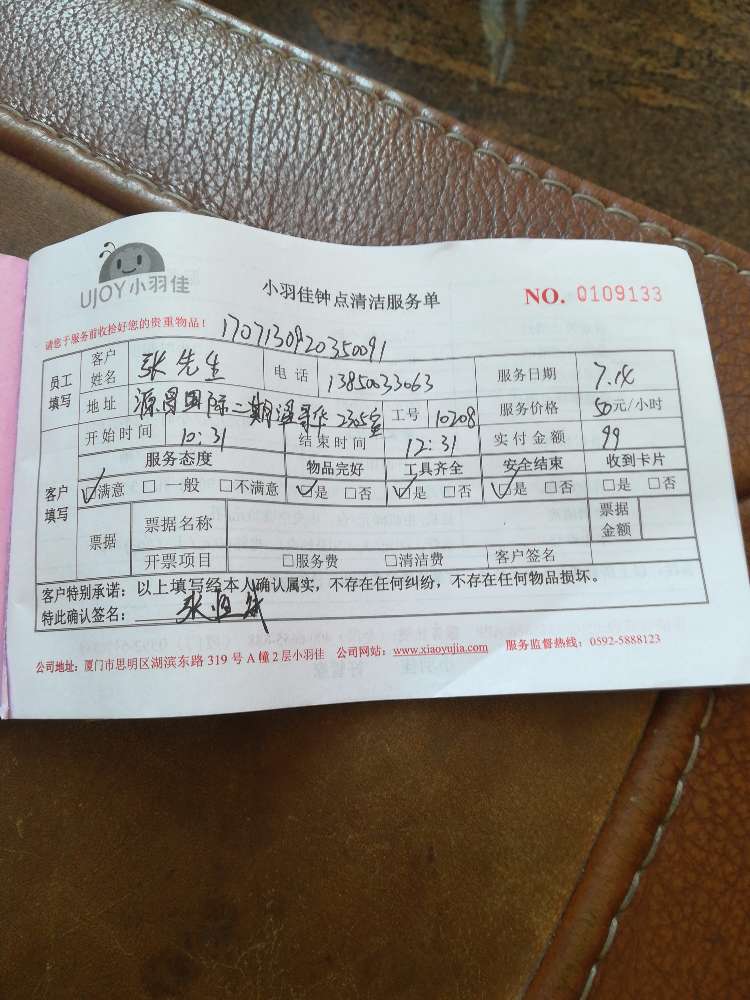 UJOY小羽佳
小羽佳钟点清洁服务单
NO. 0109133
请您于服务前收拾好您的贵重物品！
1707130920350091
员工填写 客户姓名 张先生 电话 13850033063 服务日期 7.14
地址 源昌国际二期 2305室 工号 10208 服务价格 50元/小时
开始时间 10:31 结束时间 12:31 实付金额 99
客户填写 服务态度 物品完好 工具齐全 安全结束 收到卡片
☑满意 □一般 □不满意 ☑是 □否 ☑是 □否 ☑是 □否 □是 □否
票据 票据名称 票据金额
开票项目 □服务费 □清洁费 客户签名
客户特别承诺：以上填写经本人确认属实，不存在任何纠纷，不存在任何物品损坏。
特此确认签名：张
公司地址：厦门市思明区湖滨东路 319 号 A 幢 2 层小羽佳 公司网站：www.xiaoyujia.com 服务监督热线：0592-5888123